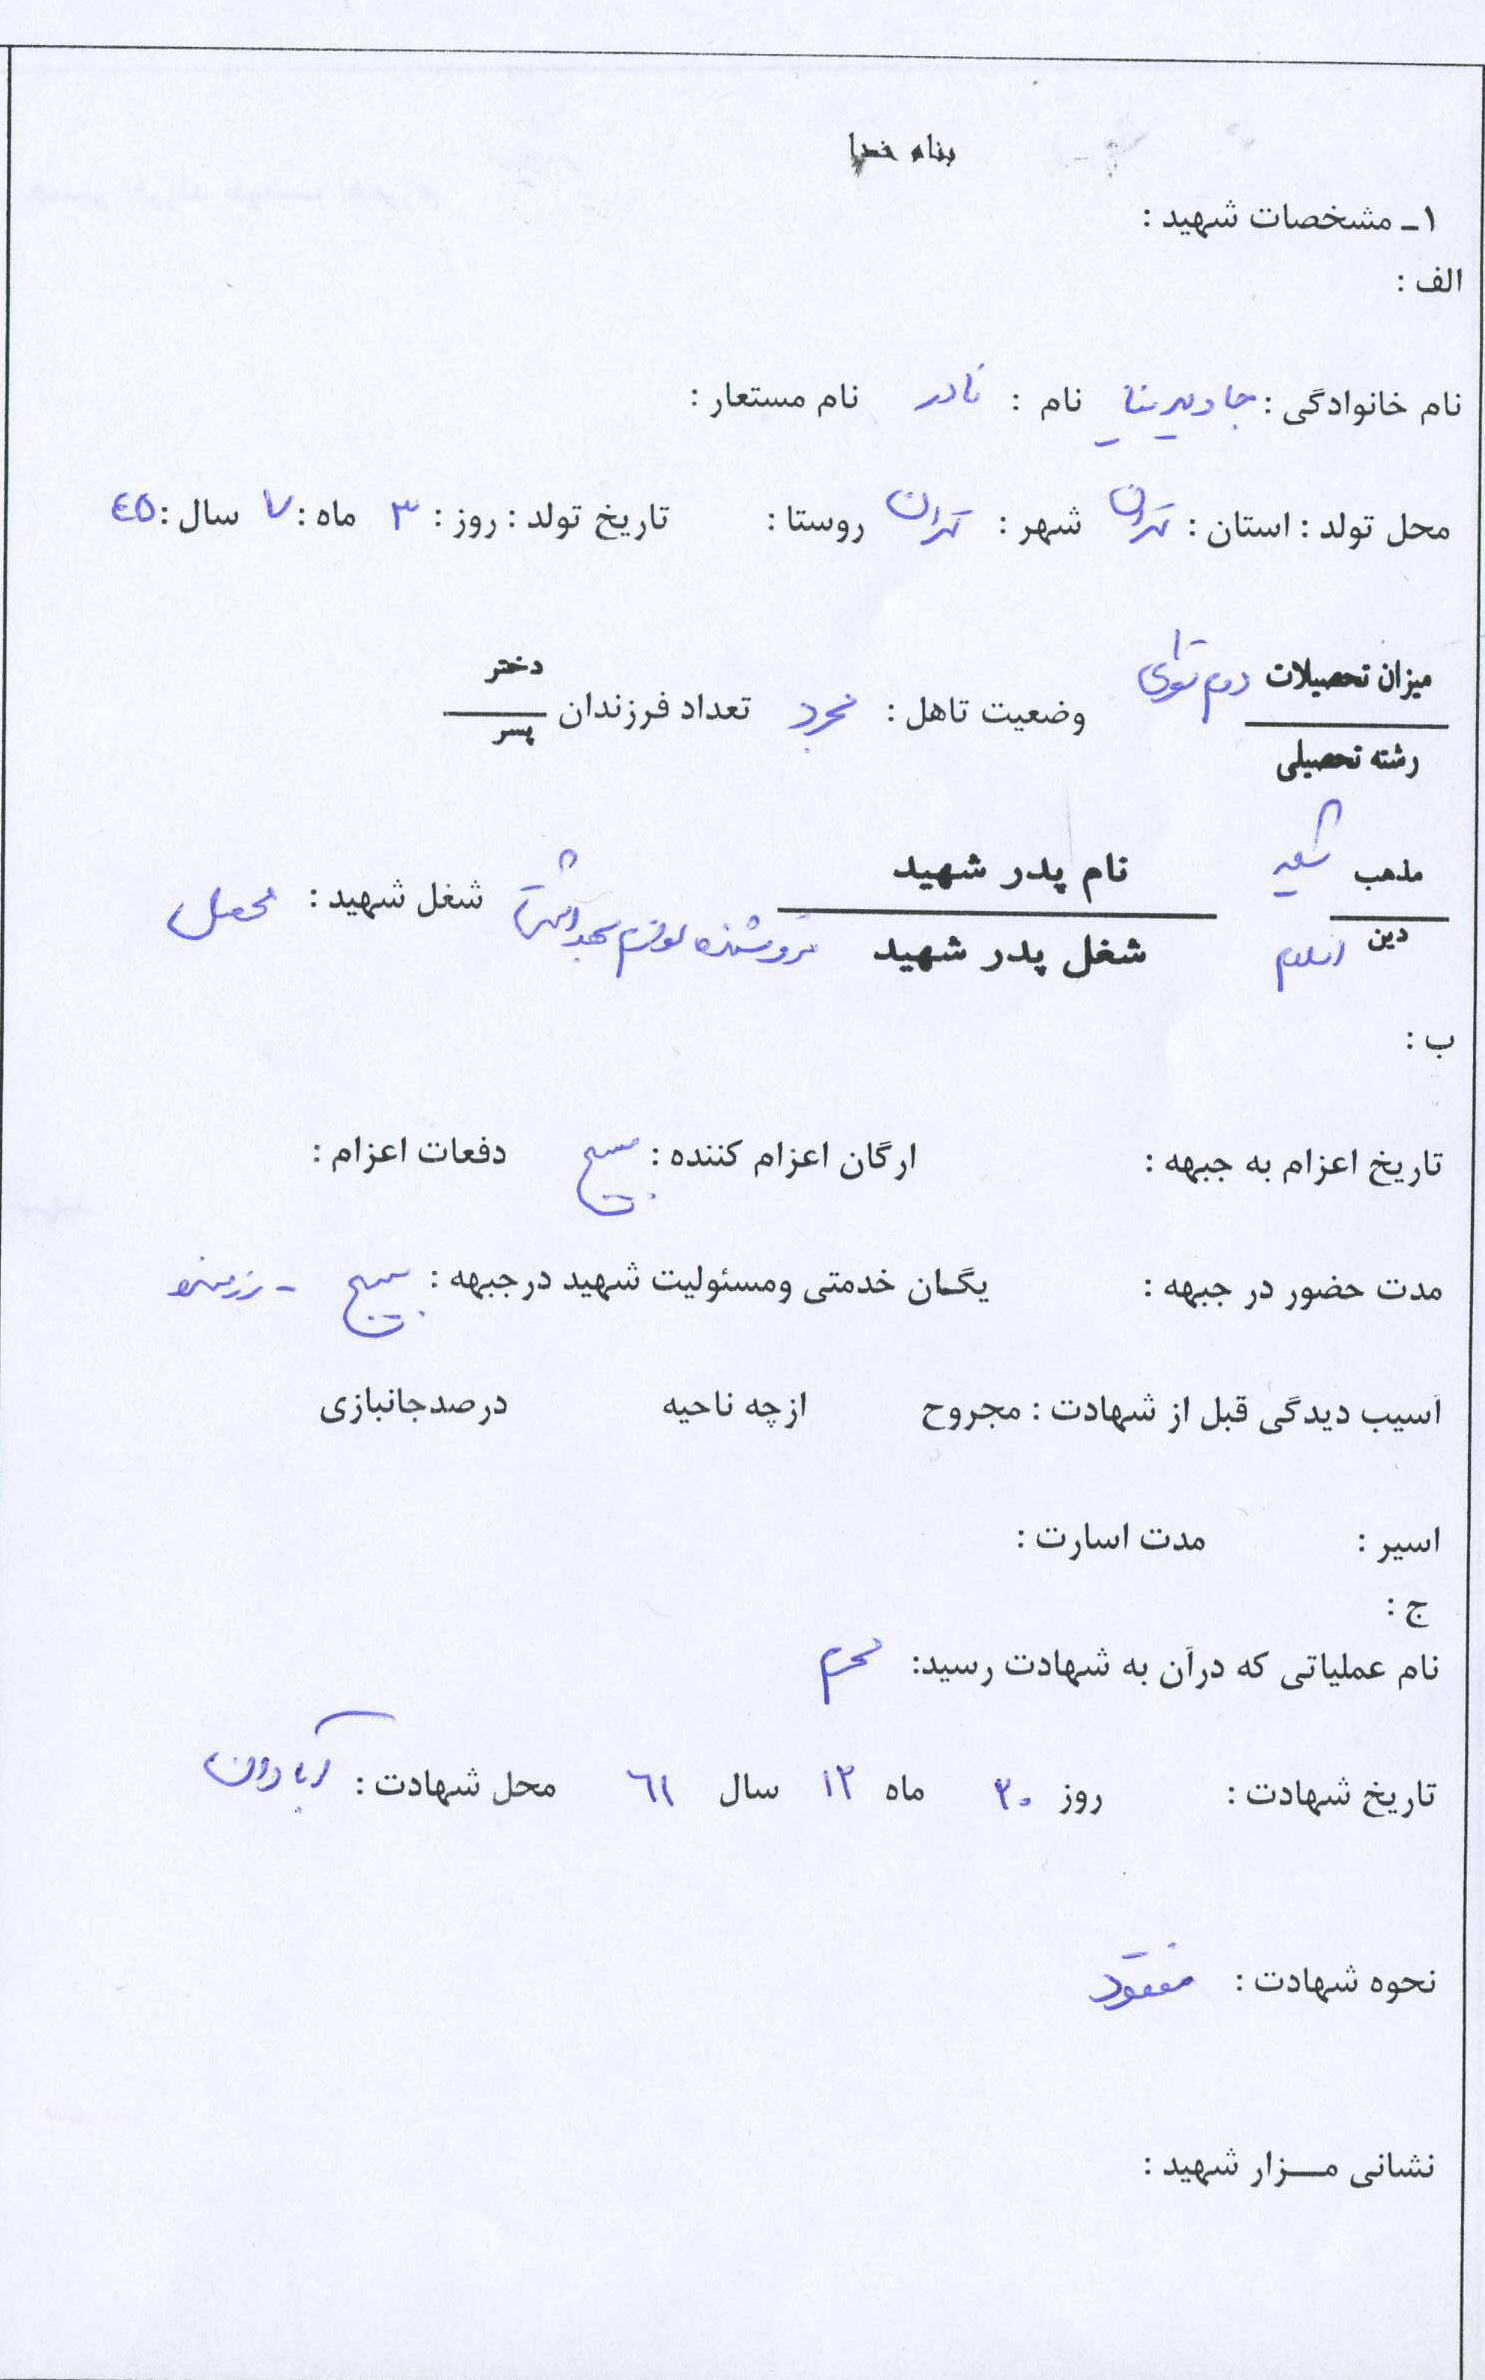 بنام خدا
۱ـ مشخصات شهید :
الف :
نام خانوادگی : نام : نادر نام مستعار :
محل تولد : استان : تهران شهر : تهران روستا : تاریخ تولد : روز : ۳ ماه : ۷ سال : ٤٥
میزان تحصیلات دوم راهنمایی
رشته تحصیلی
وضعیت تاهل : مجرد تعداد فرزندان دختر
پسر
مذهب شیعه
دین اسلام
نام پدر شهید
شغل پدر شهید فروشنده لوازم بهداشتی
شغل شهید : محصل
ب :
تاریخ اعزام به جبهه : ارگان اعزام کننده : بسیج دفعات اعزام :
مدت حضور در جبهه : یگان خدمتی ومسئولیت شهید درجبهه : بسیج - رزمنده
آسیب دیدگی قبل از شهادت : مجروح ازچه ناحیه درصدجانبازی
اسیر : مدت اسارت :
ج :
نام عملیاتی که درآن به شهادت رسید: محرم
تاریخ شهادت : روز ۲۰ ماه ۱۲ سال ٦١ محل شهادت : آبادان
نحوه شهادت : مفقود
نشانی مـــزار شهید :